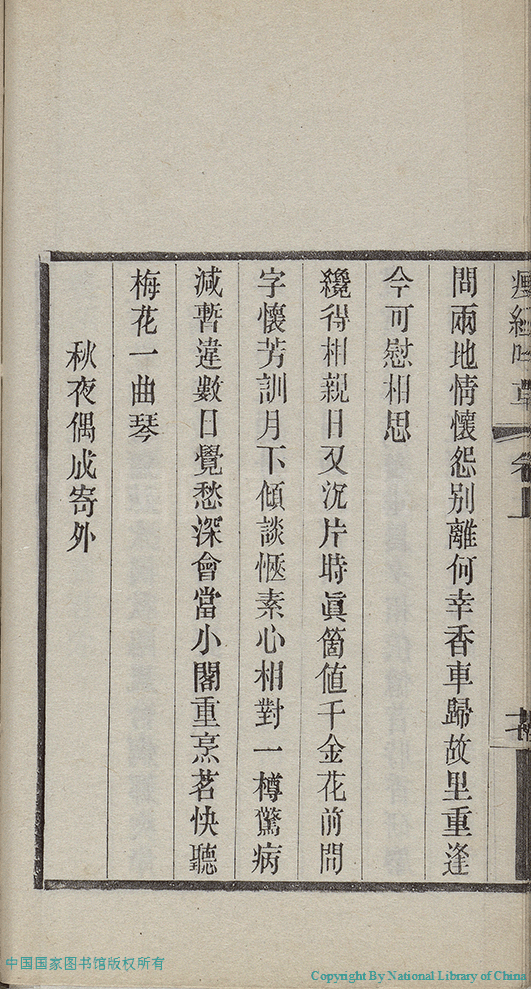 問兩地情懷怨别離何幸香車歸故里重逢
今可慰相思
纔得相親日又沉片時眞箇值千金花前問
字懷芳訓月下傾談愜素心相對一樽驚病
減暫違數日覺愁深會當小閣重烹茗快聽
梅花一曲琴
秋夜偶成寄外
中国国家图书馆版权所有
Copyright By National Library of China